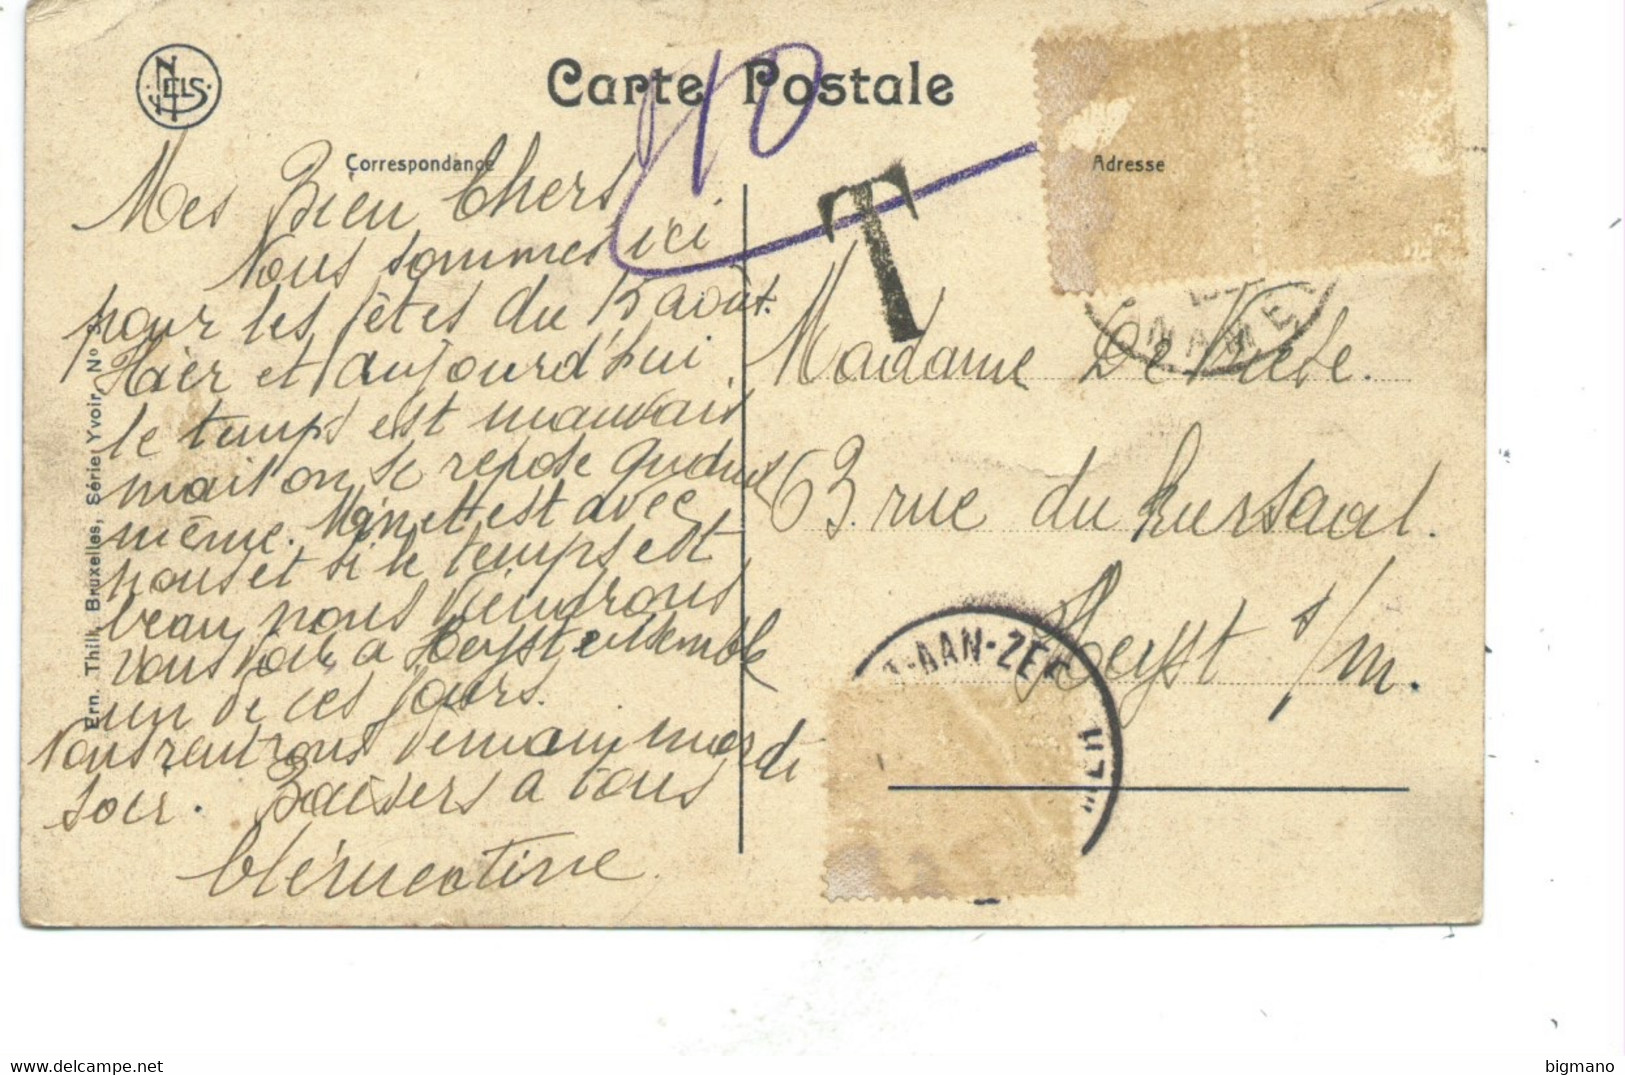 NELS
Carte Postale
10
Correspondance
Adresse
T
Mes Bien Chers
Nous sommes ici
pour les fêtes du 15 août.
Hier et aujourd'hui
le temps est mauvais
mais on se repose quand
même. Minet est avec
nous et si le temps est
beau nous viendrons
vous voir a Heyst ensemble
un de ces jours.
Nous rentrons demain mardi
soir. Baisers a tous
Clémentine
Madame De
63 rue du Kursaal.
Heyst s/m.
T-AAN-ZEE
Ern. Thill, Bruxelles, Série Yvoir, No
bigmano